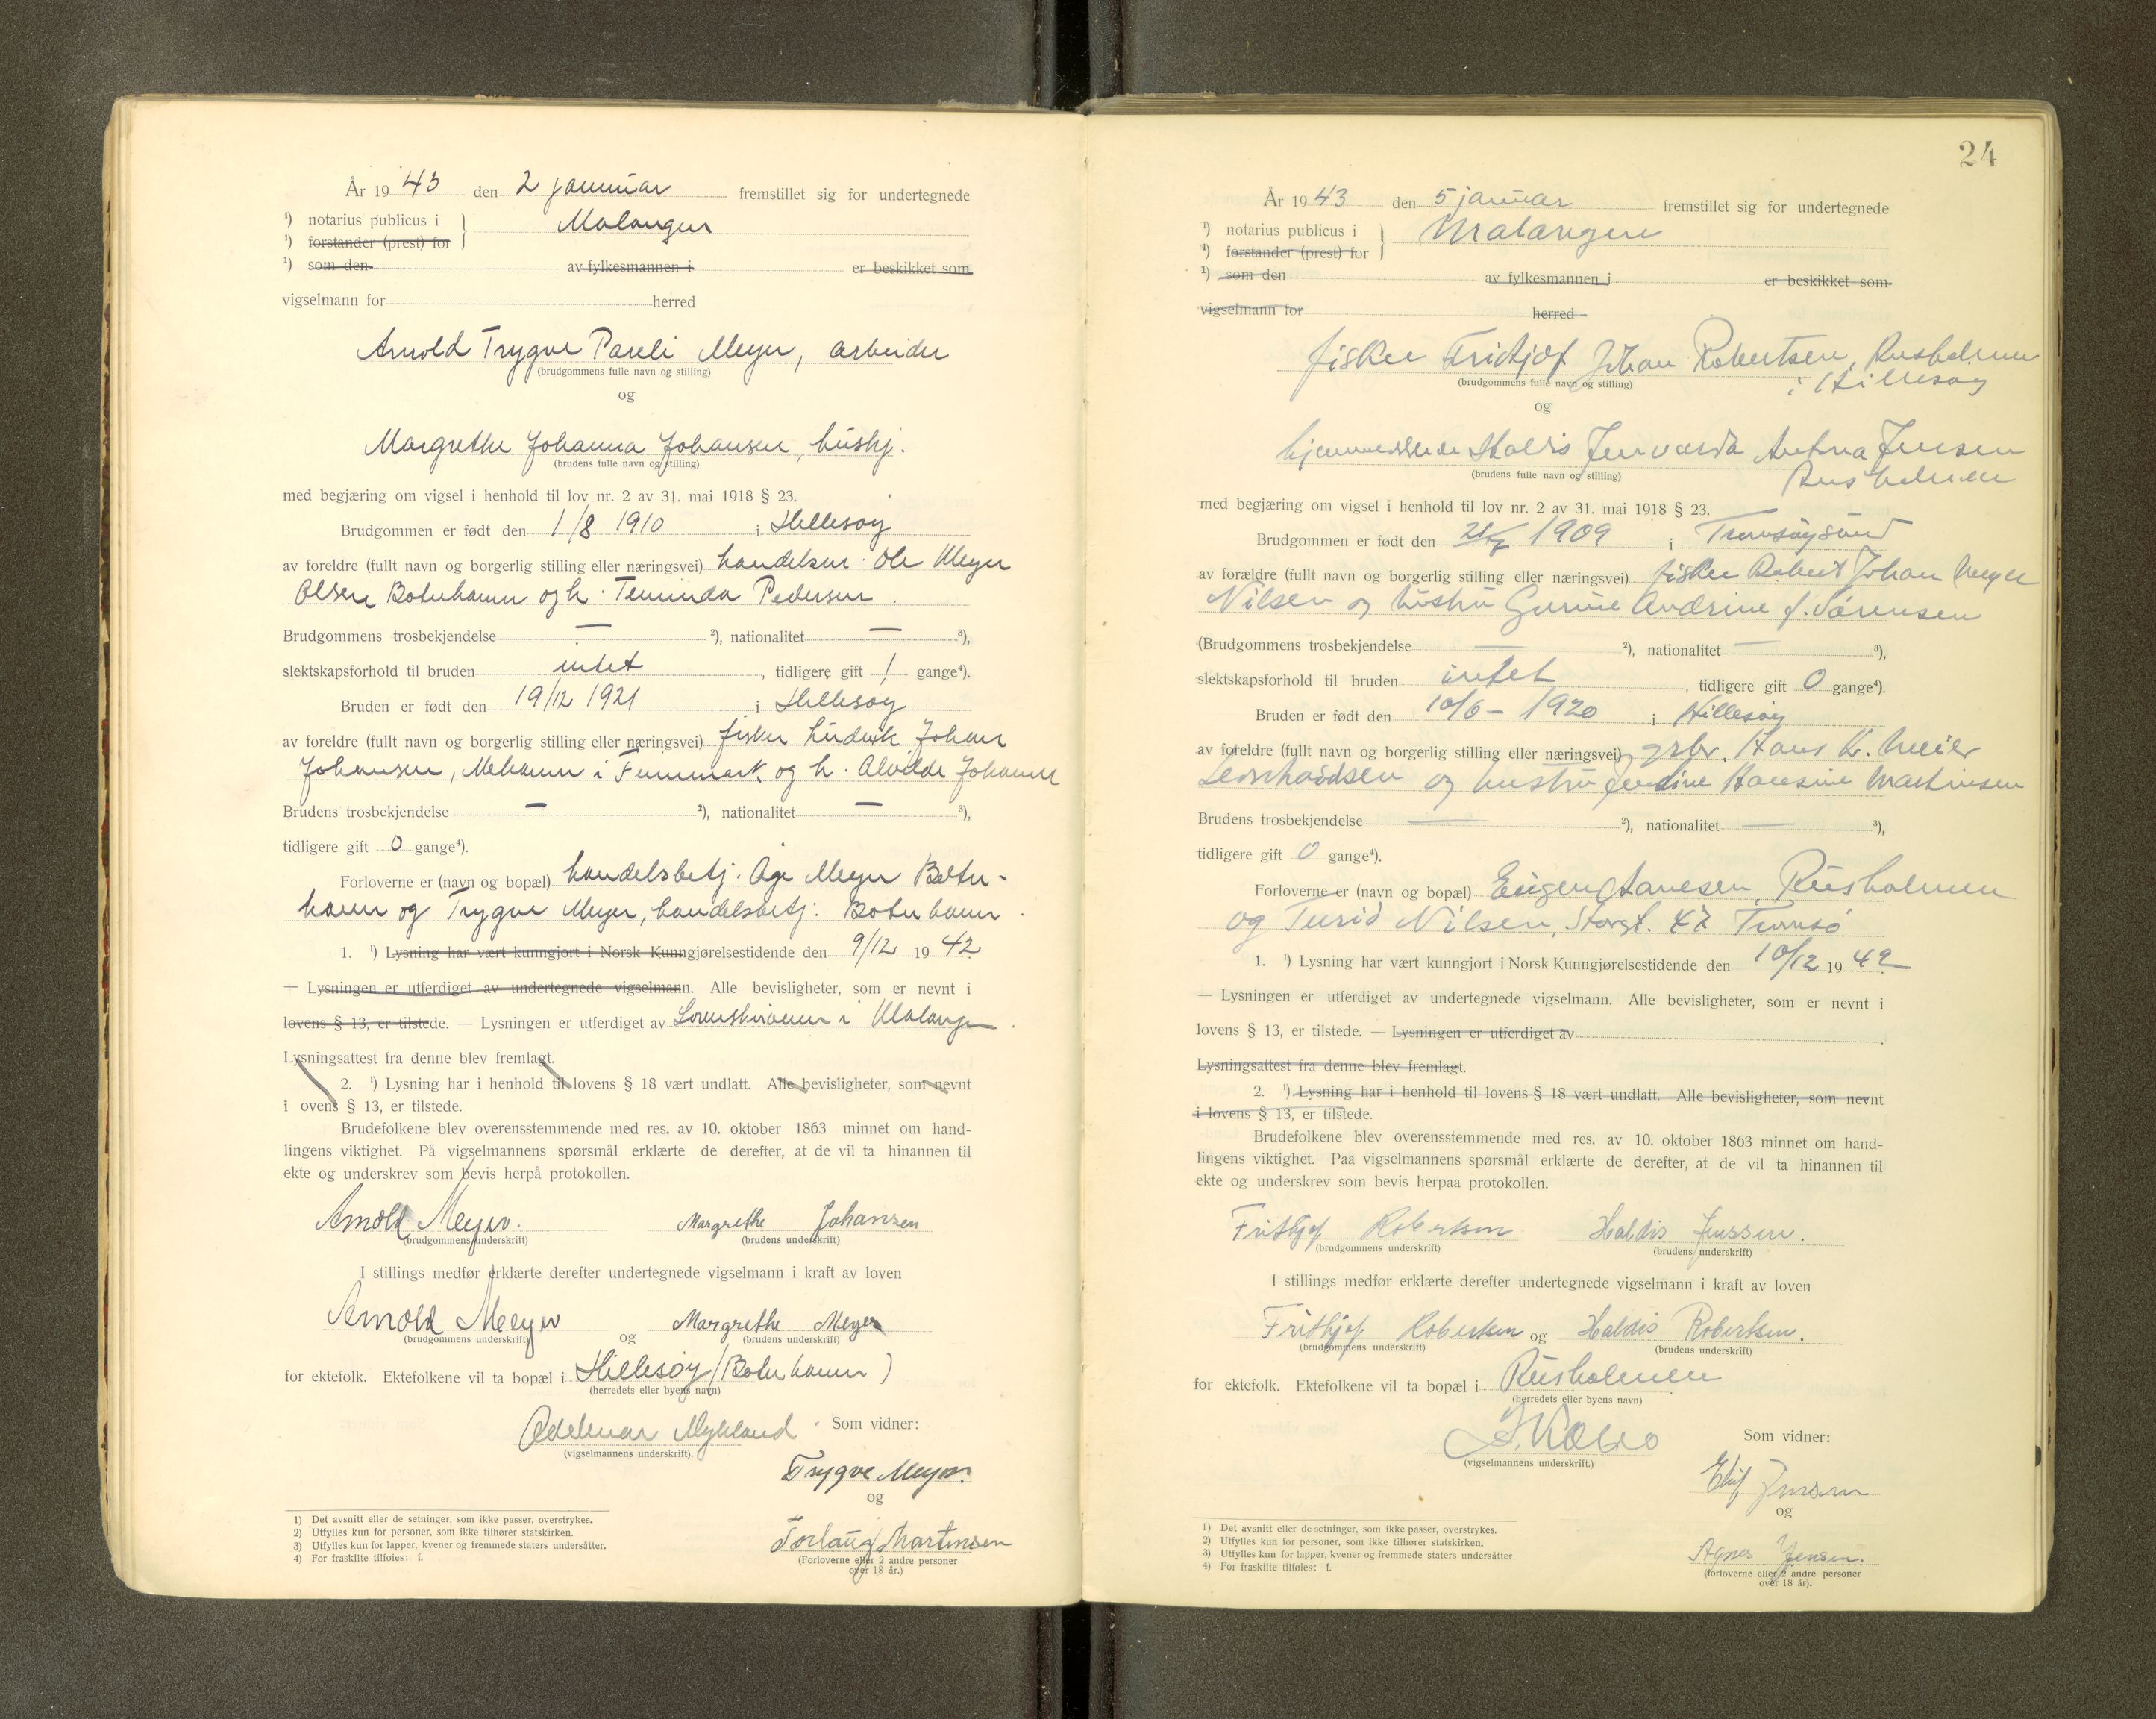 År 1943 den 2 januar fremstillet sig for undertegnede
¹) notarius publicus i } Malangen
¹) forstander (prest) for
¹) som den av fylkesmannen i er beskikket som
vigselmann for herred
Arnold Trygve Pareli Meyer, arbeider
(brudgommens fulle navn og stilling)
og
Margrethe Johanna Johansen, hushj.
(brudens fulle navn og stilling)
med begjæring om vigsel i henhold til lov nr. 2 av 31. mai 1918 § 23.
Brudgommen er født den 1/8 1910 i Hillesøy
av foreldre (fullt navn og borgerlig stilling eller næringsvei) handelsm. Ole Meyer
Olsen Botnhamn og h. Pedersen.
Brudgommens trosbekjendelse — ²), nationalitet — ³),
slektskapsforhold til bruden intet, tidligere gift 1 gange⁴).
Bruden er født den 19/12 1921 i Hillesøy
av foreldre (fullt navn og borgerlig stilling eller næringsvei) fisker Johan
Johansen, Mehamn i Finnmark og h. Alvilde Johanne
Brudens trosbekjendelse — ²), nationalitet — ³),
tidligere gift 0 gange⁴).
Forloverne er (navn og bopæl) handelsbetj. Åge Meyer Botn-
hamn og Trygve Meyer, handelsbetj. Botnhamn.
1. ¹) Lysning har vært kunngjort i Norsk Kunngjørelsestidende den 9/12 1942
— Lysningen er utferdiget av undertegnede vigselmann. Alle bevisligheter, som er nevnt i
lovens § 13, er tilstede. — Lysningen er utferdiget av Lensmannen i Malangen.
Lysningsattest fra denne blev fremlagt.
2. ¹) Lysning har i henhold til lovens § 18 vært undlatt. Alle bevisligheter, som nevnt
i ovens § 13, er tilstede.
Brudefolkene blev overensstemmende med res. av 10. oktober 1863 minnet om hand-
lingens viktighet. På vigselmannens spørsmål erklærte de derefter, at de vil ta hinannen til
ekte og underskrev som bevis herpå protokollen.
Arnold Meyer. Margrethe Johansen
(brudgommens underskrift) (brudens underskrift)
I stillings medfør erklærte derefter undertegnede vigselmann i kraft av loven
Arnold Meeyer og Margrethe Meyer
(brudgommens underskrift) (brudens underskrift)
for ektefolk. Ektefolkene vil ta bopæl i Hillesøy (Botnhamn)
(herredets eller byens navn)
Odelmar Mykland Som vidner:
(vigselmannens underskrift).
Trygve Meyer.
og
Torlaug Martinsen
(Forloverne eller 2 andre personer
over 18 år.)
1) Det avsnitt eller de setninger, som ikke passer, overstrykes.
2) Utfylles kun for personer, som ikke tilhører statskirken.
3) Utfylles kun for lapper, kvener og fremmede staters undersåtter.
4) For fraskilte tilføies: f.
24
År 1943 den 5 januar fremstillet sig for undertegnede
¹) notarius publicus i } Malangen
¹) forstander (prest) for
¹) som den av fylkesmannen i er beskikket som
vigselmann for herred
fisker Fridtjof Johan Robertsen, Rusholmen
i Hillesøy
(brudgommens fulle navn og stilling)
og
hjemmeværende Haldis Jenvarda Antona Jensen
Rusholmen
(brudens fulle navn og stilling)
med begjæring om vigsel i henhold til lov nr. 2 av 31. mai 1918 § 23.
Brudgommen er født den 1909 i Tromsøysund
av forældre (fullt navn og borgerlig stilling eller næringsvei) fisker Robert Johan Meyer
Nilsen og hustru Gurine Andrine f. Sørensen
(Brudgommens trosbekjendelse — ²), nationalitet — ³),
slektskapsforhold til bruden intet, tidligere gift 0 gange⁴).
Bruden er født den 10/6 - 1920 i Hillesøy
av foreldre (fullt navn og borgerlig stilling eller næringsvei) grbr. Hans K. Meier
Leonhardsen og hustru Jensine Hansine Martinsen
Brudens trosbekjendelse — ²), nationalitet — ³),
tidligere gift 0 gange⁴).
Forloverne er (navn og bopæl) Eugen Hansen, Rusholmen
og Turid Nilsen, Storgt. 47 Tromsø
1. ¹) Lysning har vært kunngjort i Norsk Kunngjørelsestidende den 10/12 1942
— Lysningen er utferdiget av undertegnede vigselmann. Alle bevisligheter, som er nevnt i
lovens § 13, er tilstede. — Lysningen er utferdiget av
Lysningsattest fra denne blev fremlagt.
2. ¹) Lysning har i henhold til lovens § 18 vært undlatt. Alle bevisligheter, som nevnt
i lovens § 13, er tilstede.
Brudefolkene blev overensstemmende med res. av 10. oktober 1863 minnet om hand-
lingens viktighet. Paa vigselmannens spørsmål erklærte de derefter, at de vil ta hinannen til
ekte og underskrev som bevis herpaa protokollen.
Frithjof Robertsen Haldis Jenssen.
(brudgommens underskrift) (brudens underskrift)
I stillings medfør erklærte derefter undertegnede vigselmann i kraft av loven
Frithjof Robertsen og Haldis Robertsen.
(brudgommens underskrift) (brudens underskrift)
for ektefolk. Ektefolkene vil ta bopæl i Rusholmen
(herredets eller byens navn)
(vigselmannens underskrift.)
Som vidner:
Jensen
og
Agnes Jensen.
(forloverne eller 2 andre personer
over 18 år).
1) Det avsnitt eller de setninger, som ikke passer, overstrykes.
2) Utfylles kun for personer, som ikke tilhører statskirken.
3) Utfylles kun for lapper, kvener og fremmede staters undersåtter
4) For fraskilte tilføies: f.